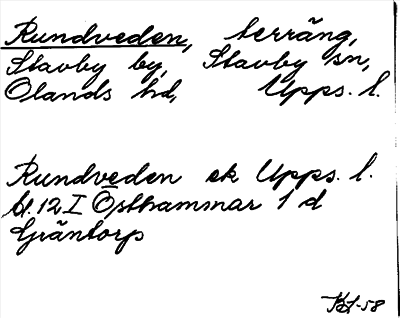 Rundveden, terräng,
Stavby by, Stavby sn,
Olands hd, Upps. l.
Rundveden ek Upps. l.
bl. 12 I Östhammar 1 d
Gräntorp
KL-58